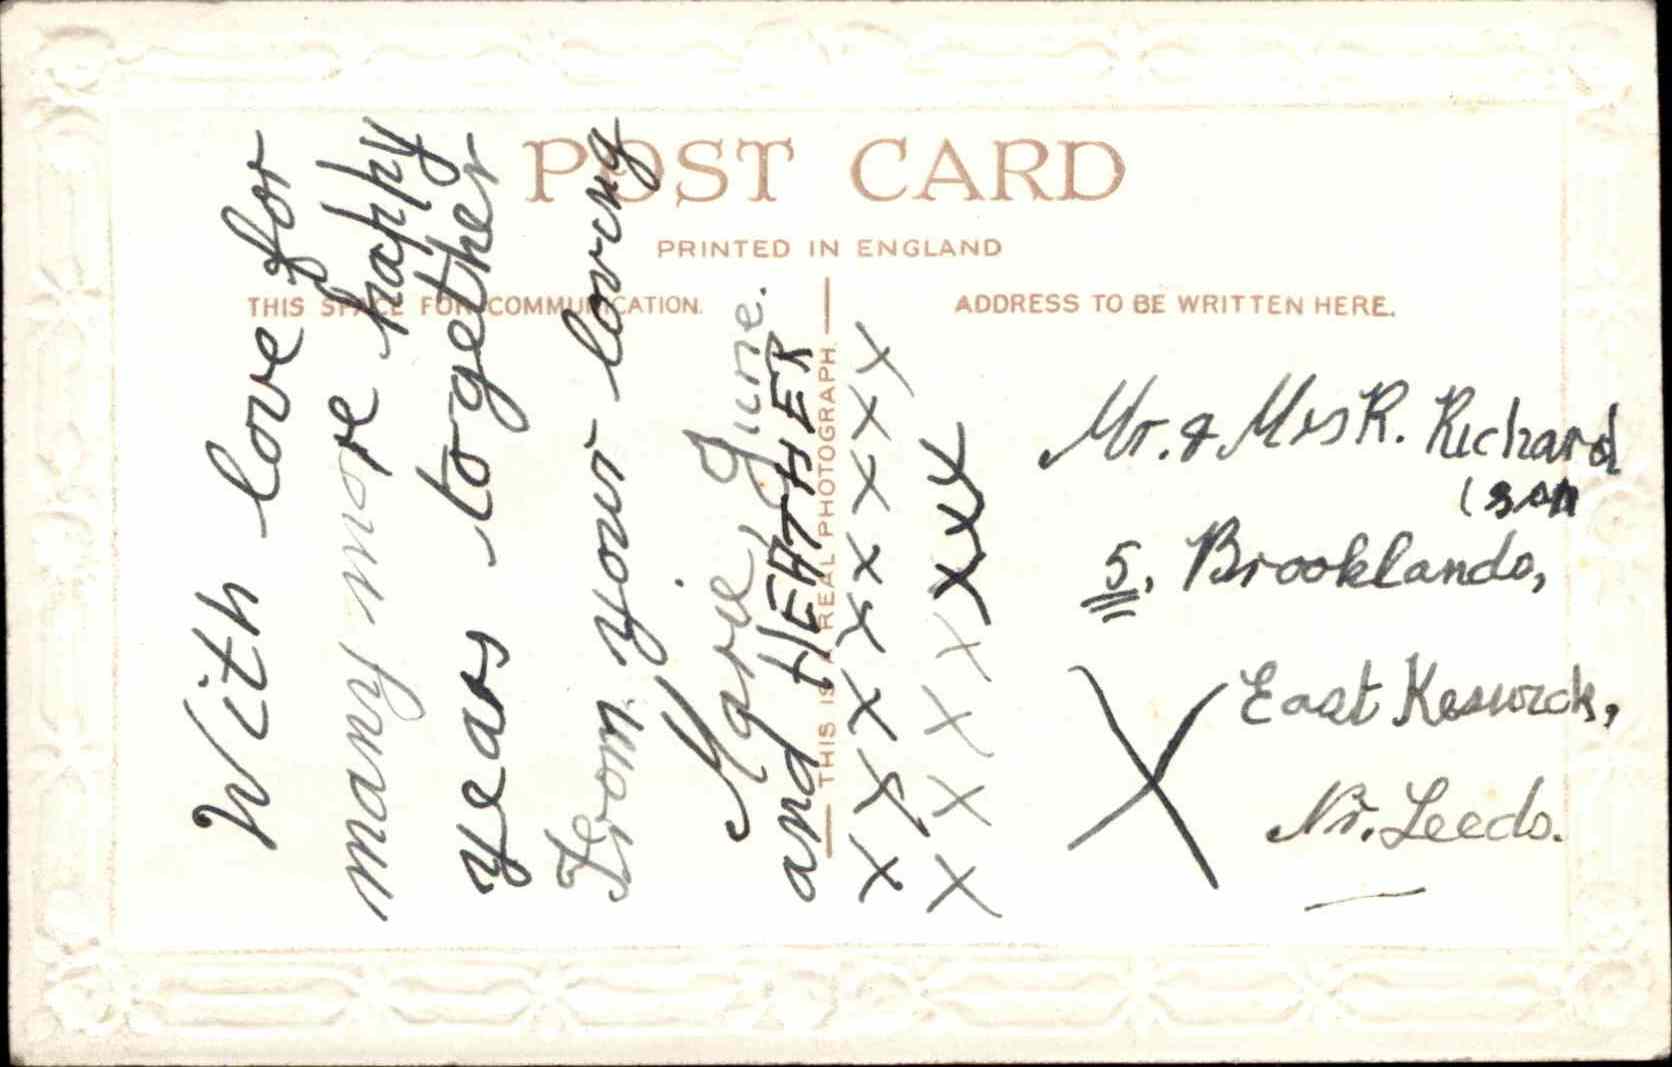 POST CARD
PRINTED IN ENGLAND
THIS SPACE FOR COMMUNICATION.
ADDRESS TO BE WRITTEN HERE.
THIS IS A REAL PHOTOGRAPH.
With love for
many more happy
years together
From your loving
Marie, June.
and HEATHER
X X X X X X X X
X X X X X X X
Mr. & Mrs R. Richard
(son
5, Brooklands,
X East Keswick,
Nr. Leeds.